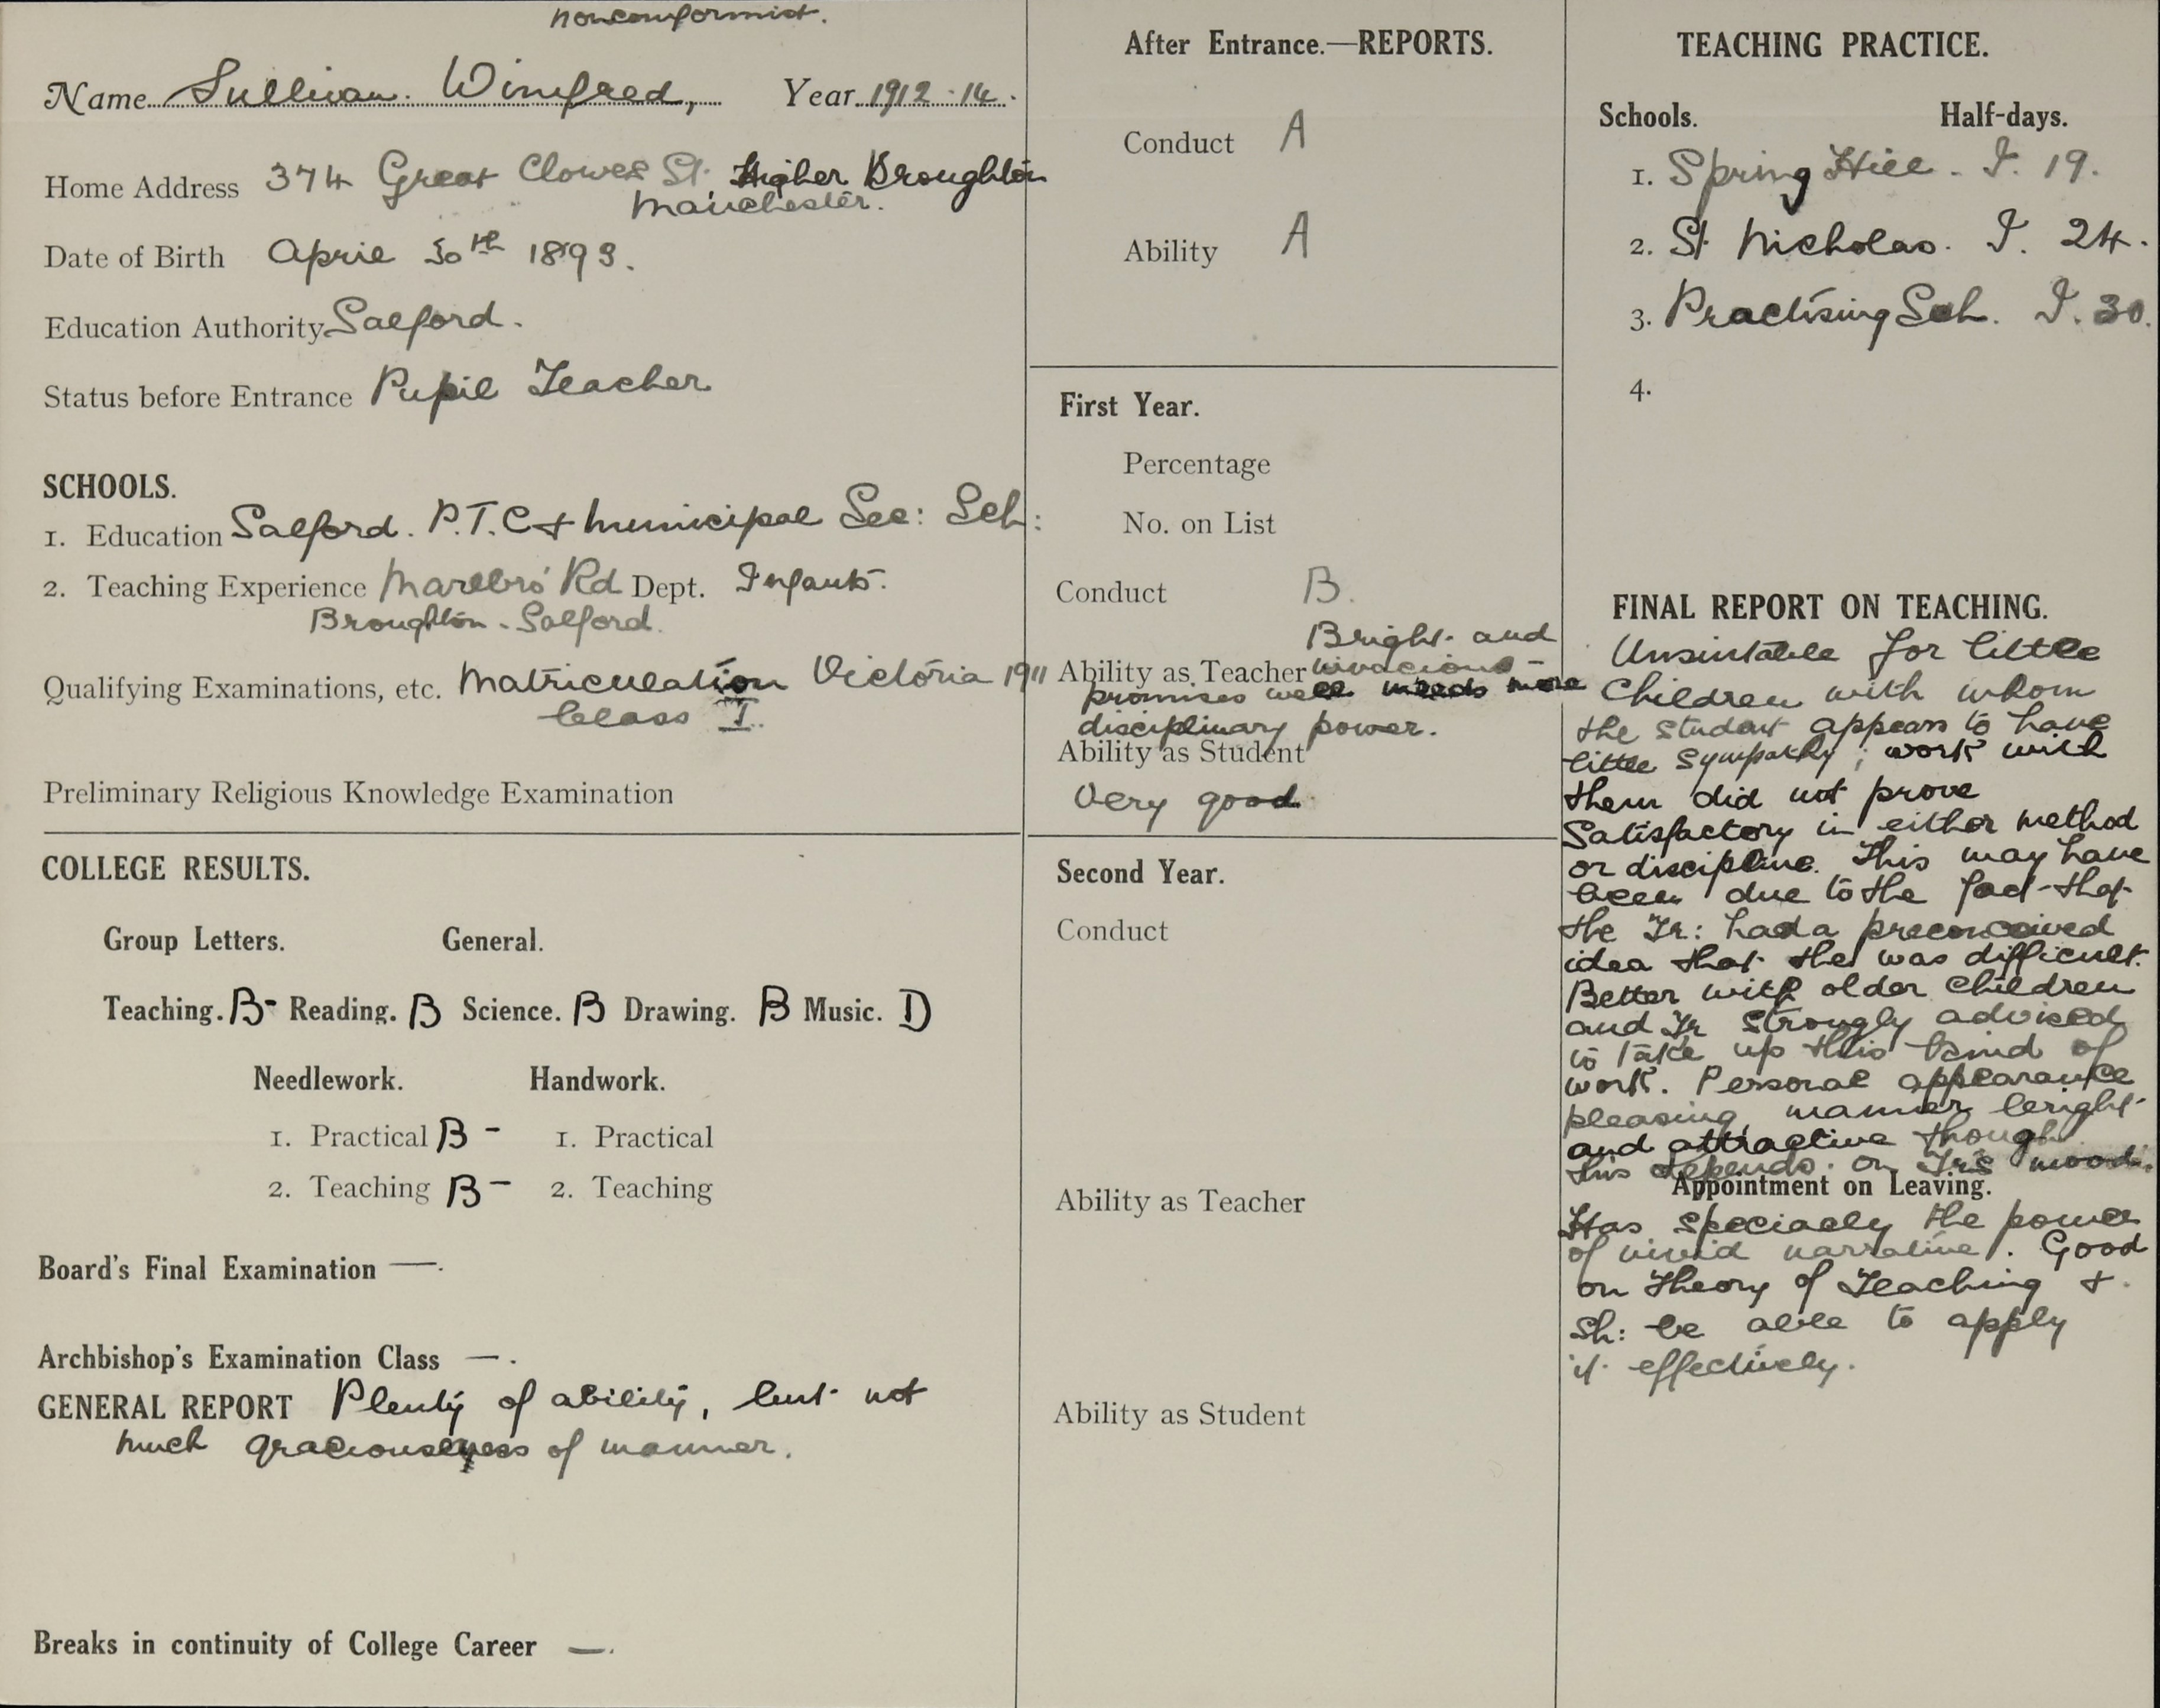 Nonconformist.
Name Sullivan. Winifred, Year 1912-14.
Home Address 374 Great Clowes St. Higher Broughton
Manchester.
Date of Birth April 30th 1893.
Education Authority Salford.
Status before Entrance Pupil Teacher
SCHOOLS.
1. Education Salford. P.T.C & Municipal Sec: Sch:
2. Teaching Experience Marlbro' Rd Dept. Infants.
Broughton - Salford.
Qualifying Examinations, etc. Matriculation Victoria 1911
Class I.
Preliminary Religious Knowledge Examination
COLLEGE RESULTS.
Group Letters. General.
Teaching. B- Reading. B Science. B Drawing. B Music. D
Needlework. Handwork.
1. Practical B - 1. Practical
2. Teaching B - 2. Teaching
Board's Final Examination —.
Archbishop's Examination Class — .
GENERAL REPORT Plenty of ability, but not
much graciousness of manner.
Breaks in continuity of College Career —.
After Entrance.—REPORTS.
Conduct A
Ability A
First Year.
Percentage
No. on List
Conduct B.
Bright and
Ability as Teacher vivacious -
promises well needs more
disciplinary power.
Ability as Student
Very good.
Second Year.
Conduct
Ability as Teacher
Ability as Student
TEACHING PRACTICE.
Schools. Half-days.
1. Spring Hill - I. 19.
2. St Nicholas. I. 24.
3. Practising Sch. I. 30.
4.
FINAL REPORT ON TEACHING.
Unsuitable for little
Children with whom
the student appears to have
little sympathy; work with
them did not prove
Satisfactory in either method
or discipline. This may have
been due to the fact that
the Tr: had a preconceived
idea that she was difficult.
Better with older children
and Tr strongly advised
to take up this kind of
work. Personal appearance
pleasing, manner bright
and attractive though
this depends. on Tr's mood.
Appointment on Leaving.
Has specially the power
of vivid narrative. Good
on Theory of Teaching &
sh: be able to apply
it effectively.